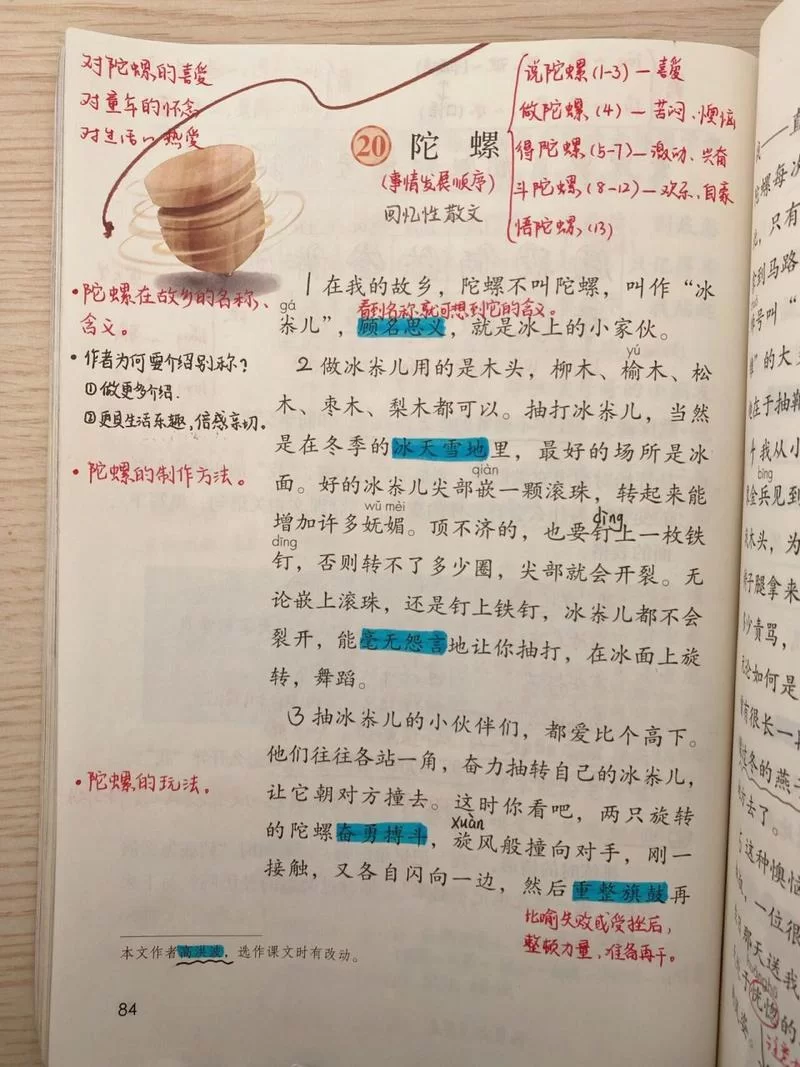 对陀螺的喜爱
对童年的怀念
对生活的热爱
20 陀螺
(事情发展顺序)
回忆性散文
说陀螺(1-3)—喜爱
做陀螺(4)—苦闷、懊恼
得陀螺(5-7)—激动、兴奋
斗陀螺(8-12)—欢乐、自豪
悟陀螺(13)
·陀螺在故乡的名称、
含义。
·作者为何要介绍别称?
①做更多介绍.
②更具生活乐趣,倍感亲切。
·陀螺的制作方法。
·陀螺的玩法。
1 在我的故乡,陀螺不叫陀螺,叫作“冰
gá
看到名称就可想到它的含义。
尜儿”,顾名思义,就是冰上的小家伙。
yú
2 做冰尜儿用的是木头,柳木、榆木、松
木、枣木、梨木都可以。抽打冰尜儿,当然
是在冬季的冰天雪地里,最好的场所是冰
qiàn
面。好的冰尜儿尖部嵌一颗滚珠,转起来能
wǔ mèi
dìng
增加许多妩媚。顶不济的,也要钉上一枚铁
dīng
钉,否则转不了多少圈,尖部就会开裂。无
论嵌上滚珠,还是钉上铁钉,冰尜儿都不会
裂开,能毫无怨言地让你抽打,在冰面上旋
转,舞蹈。
3 抽冰尜儿的小伙伴们,都爱比个高下。
他们往往各站一角,奋力抽转自己的冰尜儿,
让它朝对方撞去。这时你看吧,两只旋转
xuàn
的陀螺奋勇搏斗,旋风般撞向对手,刚一
接触,又各自闪向一边,然后重整旗鼓再
比喻失败或受挫后,
整顿力量,准备再干。
本文作者高洪波,选作课文时有改动。
84
陀螺每次
只有
到马路
号叫“
”的大
在于抽鞭
我从小
bīng
金兵见到
木头,为
子腿拿来
少责骂,
论如何是
有很长一
冬的燕子
去了。
这种懊恼
一位很
那天送我
恍惚的